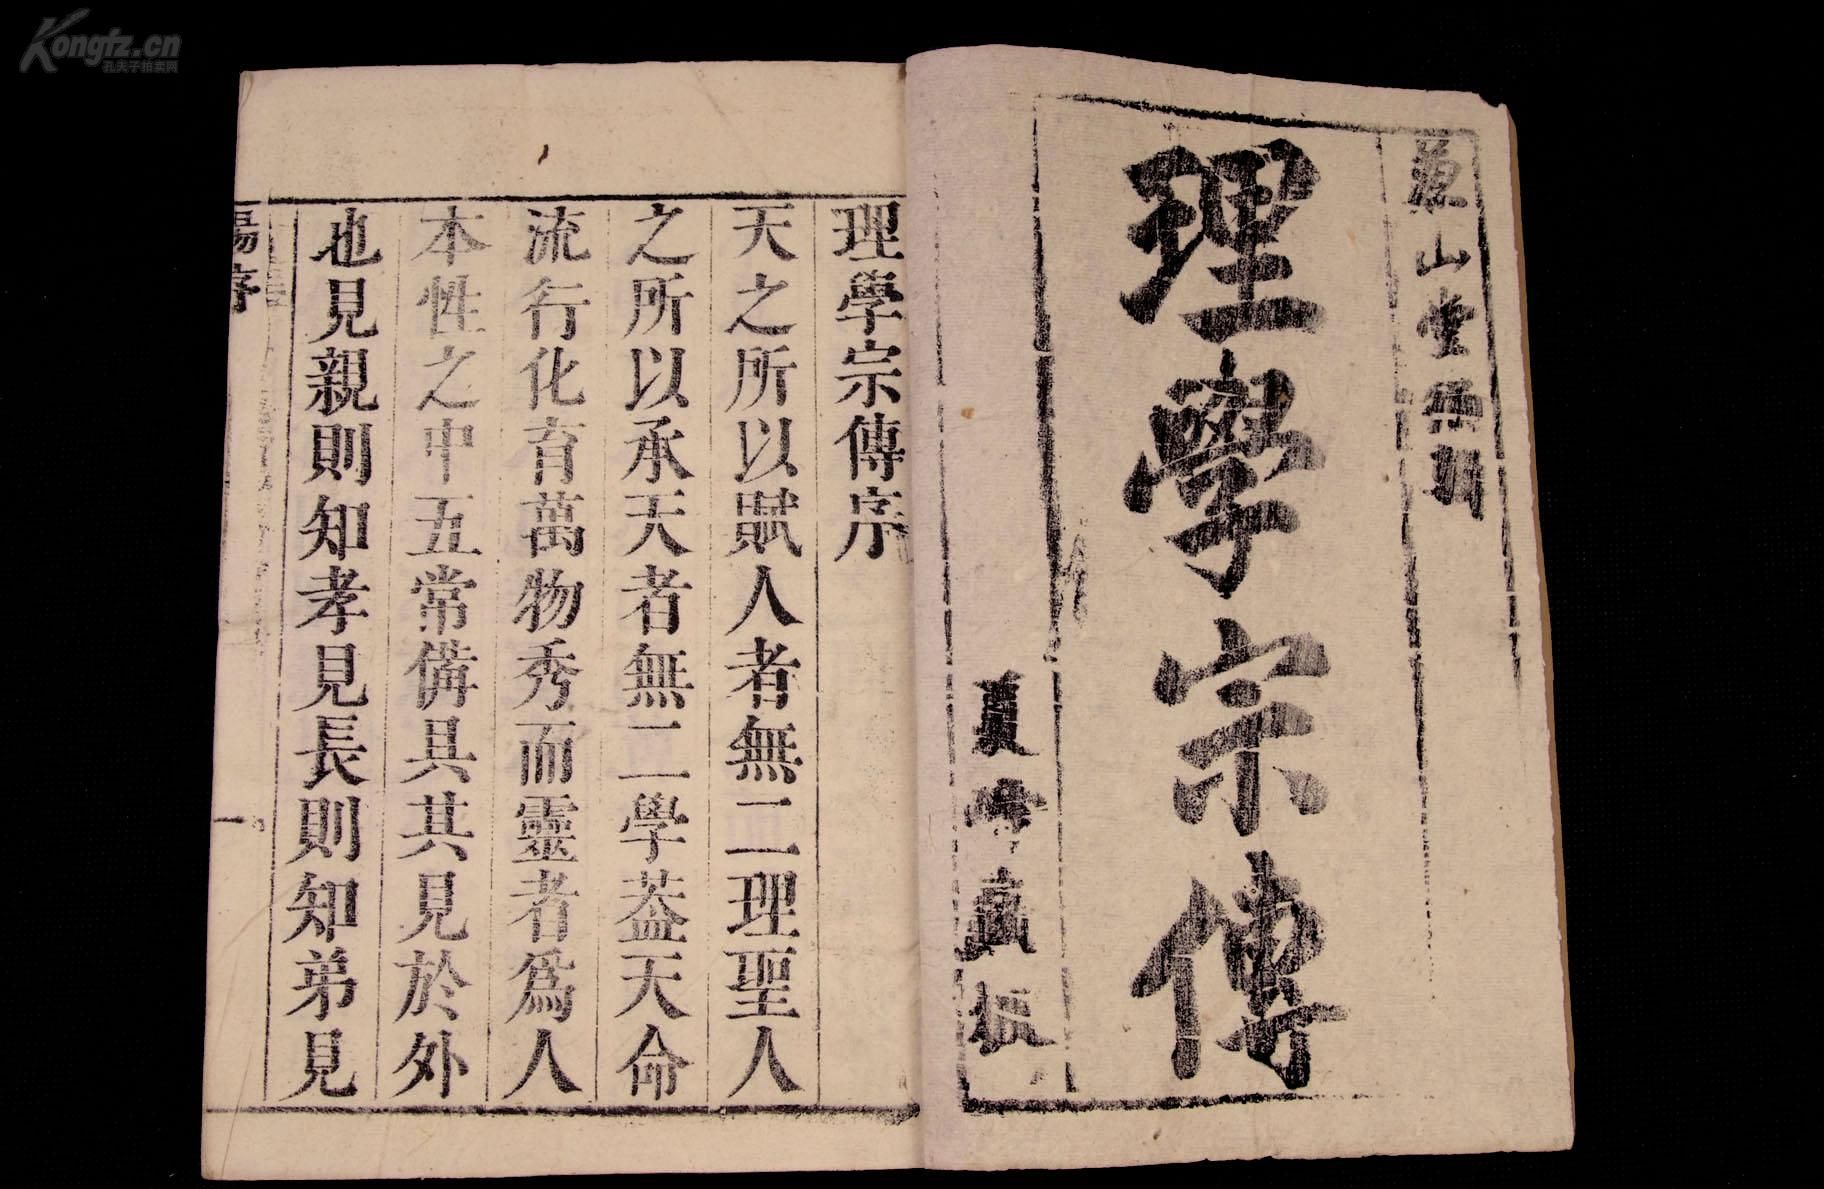 Kongfz.cn
孔夫子拍卖网
兼山堂編輯
理學宗傳
夏峰藏板
理學宗傳序
天之所以賦人者無二理聖人
之所以承天者無二學葢天命
流行化育萬物秀而靈者爲人
本性之中五常備具其見於外
也見親則知孝見長則知弟見
湯序
一